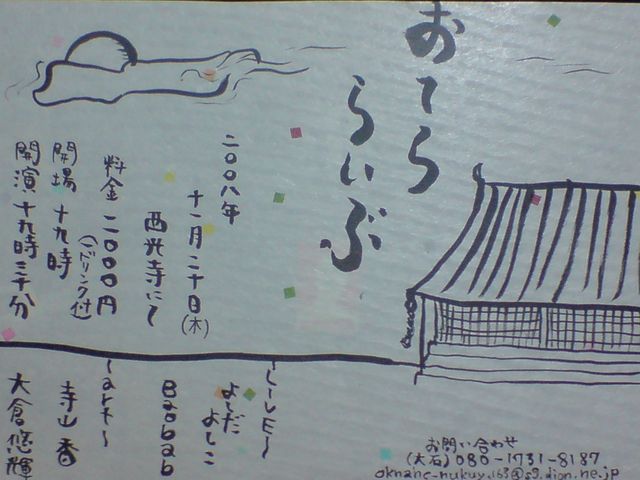 おてら
らいぶ
二〇〇八年
十一月二十日(木)
西光寺にて
料金 二〇〇〇円
(1ドリンク付)
開場 十九時
開演 十九時三十分
〜LIVE〜
よしだ よしこ
Baobab
〜art〜
寺山 香
大倉 悠輝
お問い合わせ
(大石) 080-1731-8187
oknahc-nukuy.163@s9.dion.ne.jp